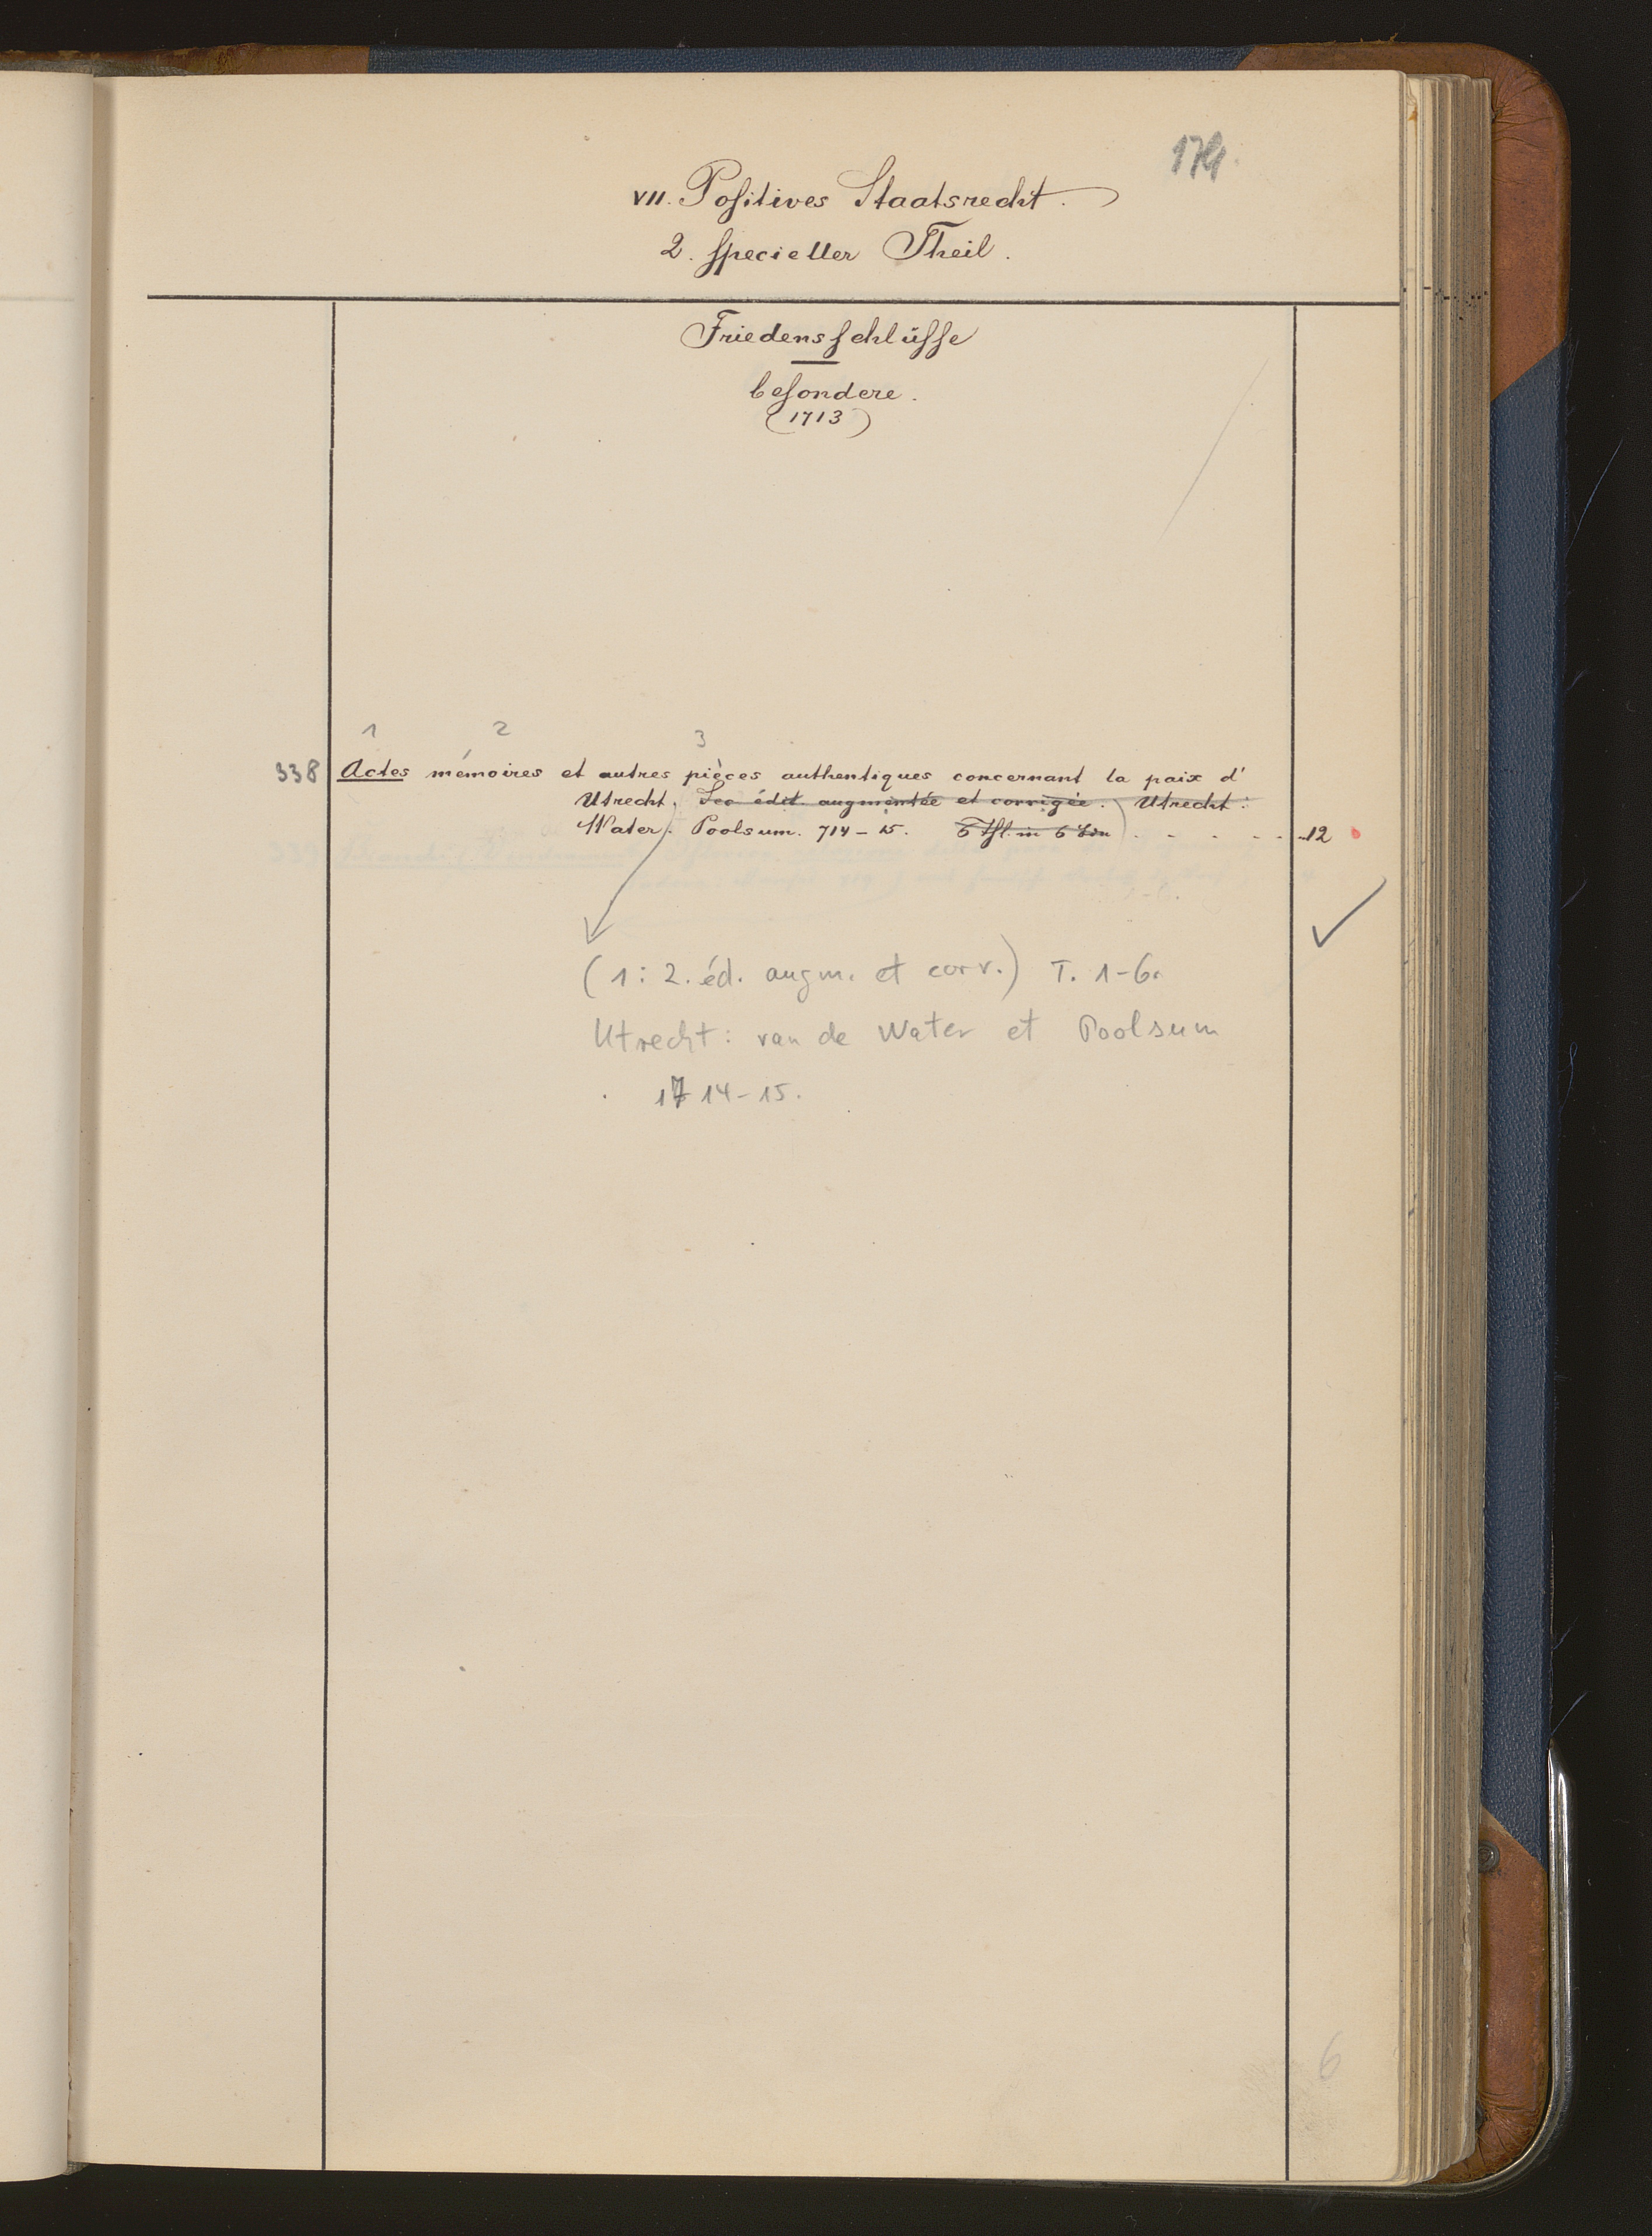 174.
VII. Positives Staatsrecht.
2. specieller Theil.
Friedensschlüsse
besondere.
(1713)
1 2 3
338 Actes mémoires et autres pièces authentiques concernant la paix d'
Utrecht. Sec édit. augmentée et corrigée. Utrecht:
Water. Poolsum. 714-15. 6 Thl. in 6 Bdn . . . . . 12
(1: 2. éd. augm. et corr.) T. 1-6.
Utrecht: van de Water et Poolsum
1714-15.
6